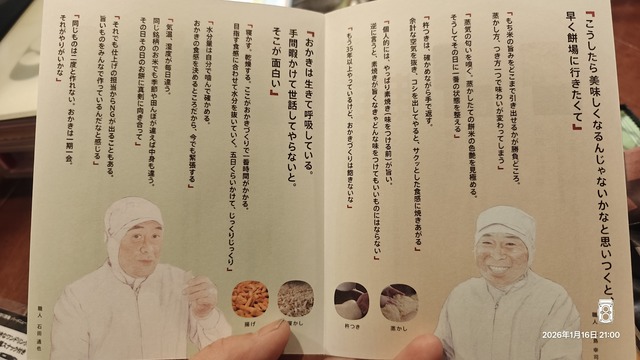 『こうしたら美味しくなるんじゃないかなと思いつくと、
早く餅場に行きたくて』
『もち米の旨みをどこまで引き出せるかが勝負どころ。
蒸かし方、つき方一つで味わいが変わってしまう』
『蒸気の匂いを嗅ぐ、蒸かしたての餅米の色艶を見極める。
そうしてその日に一番の状態を整える』
『杵つきは、確かめながら手で返す。
余計な空気を抜き、コシを出してやると、サクッとした食感に焼きあがる』
『個人的には、やっぱり素焼き(味をつける前)が旨い。
逆に言うと、素焼きが旨くなきゃどんな味をつけてもいいものにはならない』
『もう35年以上やっているけど、おかきづくりは飽きないな』
杵つき
蒸かし
『おかきは生きて呼吸している。
手間暇かけて世話してやらないと。
そこが面白い』
『寝かす、乾燥する。ここがおかきづくりで一番時間がかかる。
目指す食感に合わせて水分を抜いていく、五日くらいかけて、じっくりじっくり』
『水分量は自分で噛んで確かめる。
おかきの食感を決めるところだから、今でも緊張する』
『気温、湿度が毎日違う。
同じ銘柄のお米でも季節や田んぼが違えば中身も違う。
その日その日のお餅に真剣に向き合って』
『それでも仕上げの担当からNGが出ることもある。
旨いものをみんなで作っているんだなと感じる』
『同じものは二度と作れない。おかきは一期一会。
それがやりがいかな』
揚げ
寝かし
職人 石田 通也
職人
2026年1月16日 21:00